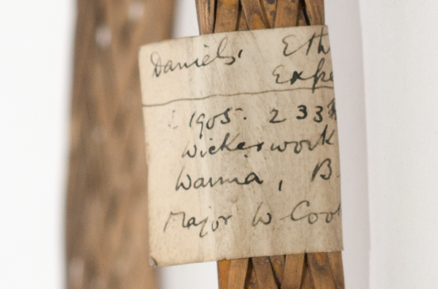 Daniels. Eth
Expe
1905. 233
Wickerwork
Wanma, B.
Major W. Coo